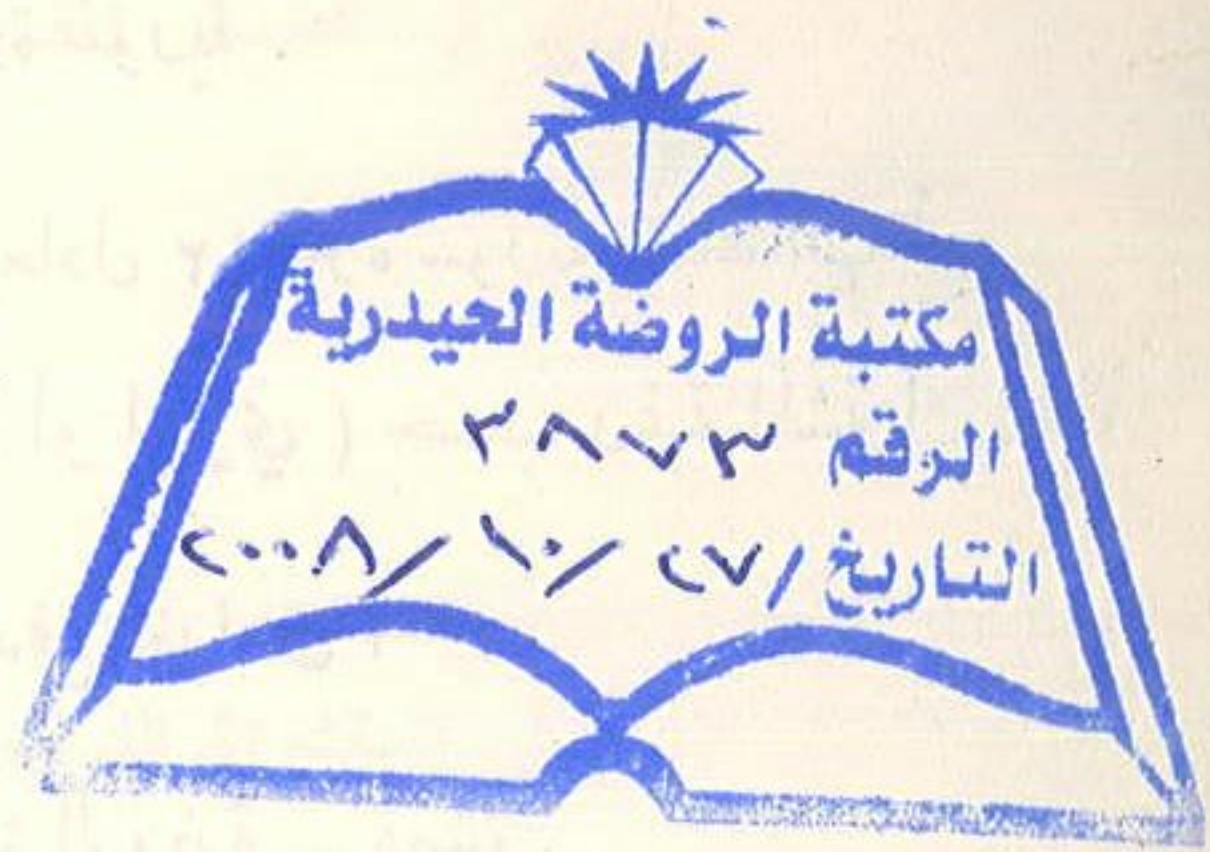 مكتبة الروضة الحيدرية
الرقم ٣٨٧٣
التاريخ / ٢٧ / ١٠ / ٢٠٠٨